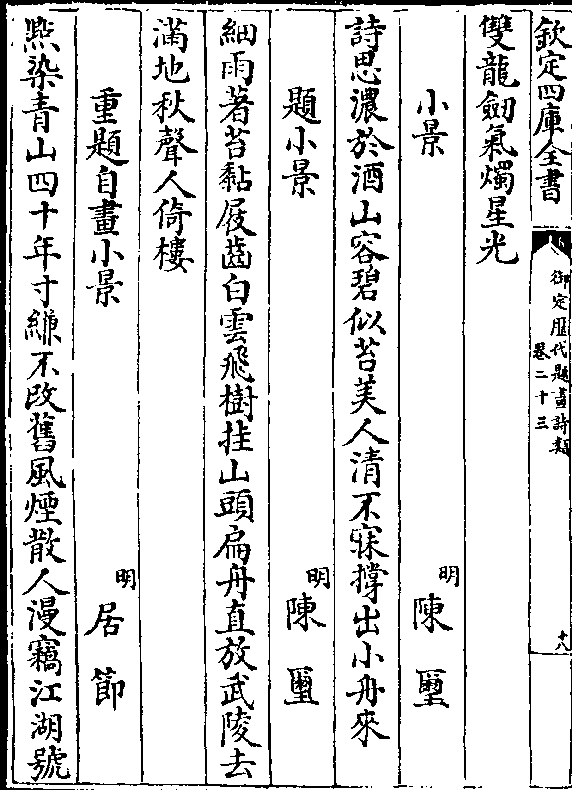 欽定四庫全書
御定歷代題畫詩類
卷二十三
十八
雙龍劒氣燭星光
小景
明
陳壐
詩思濃於酒山容碧似苔美人清不寐撐出小舟來
題小景
明
陳壐
細雨著苔黏屐齒白雲飛樹拄山頭扁舟直放武陵去
滿地秋聲人倚樓
重題自畫小景
明
居節
點染青山四十年寸縑不改舊風煙散人漫竊江湖號